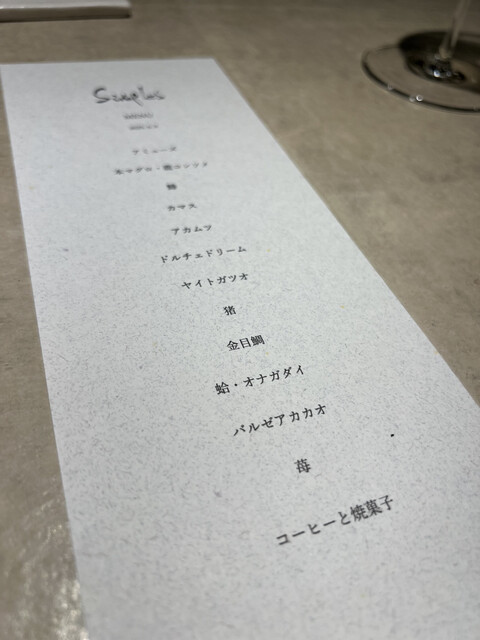 Simples
MENU
アミューズ
本マグロ・鶏コンソメ
カマス
アカムツ
ドルチェドリーム
ヤイトガツオ
猪
金目鯛
蛤・オナガダイ
パルゼアカカオ
苺
コーヒーと焼菓子